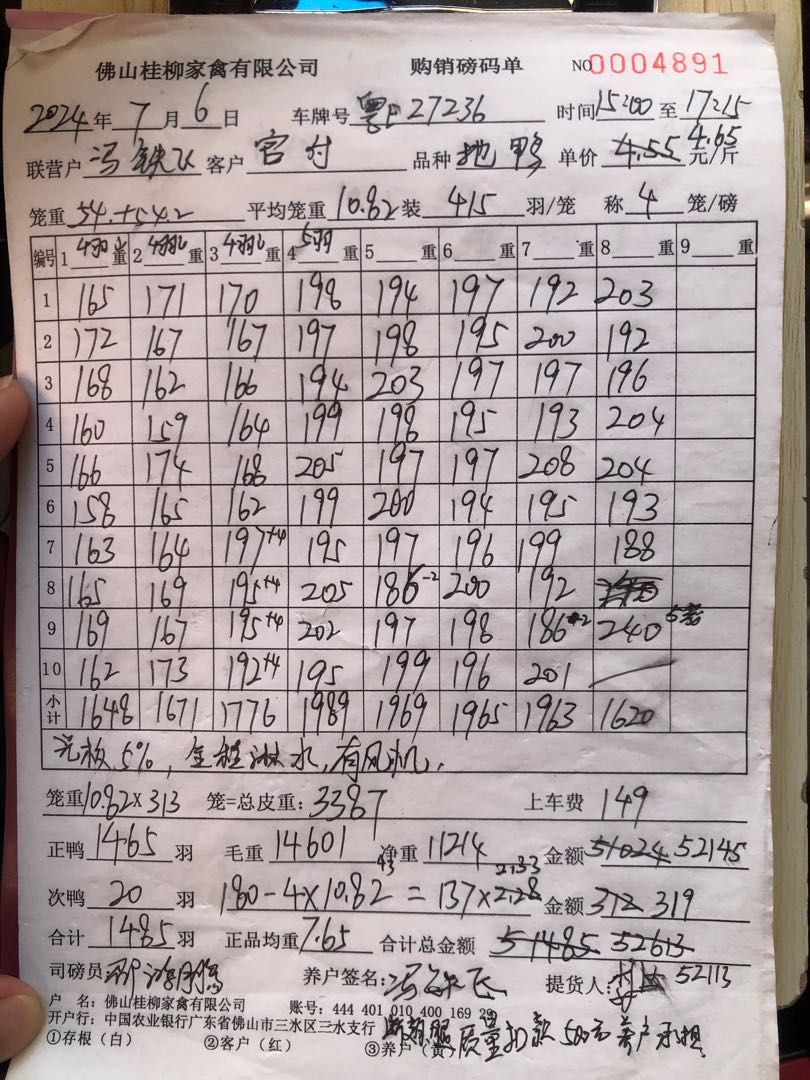 佛山桂柳家禽有限公司 购销磅码单 NO 0004891
2024年 7月 6日 车牌号 粤E27236 时间 15:00 至 17:15
联营户 冯铁飞 客户 官村 品种 地鸭 单价 4.55 4.65 元/斤
笼重 54.+54.2 平均笼重 10.82 装 415 羽/笼 称 4 笼/磅
编号 1 4羽 重 2 4羽 重 3 4羽 重 4 5羽 重 5 重 6 重 7 重 8 重 9 重
1 165 171 170 198 194 197 192 203
2 172 167 167 197 198 195 200 192
3 168 162 166 194 203 197 197 196
4 160 159 164 199 198 195 193 204
5 166 174 168 205 197 197 208 204
6 158 165 162 199 200 194 195 193
7 163 164 197+4 195 197 196 199 188
8 165 169 195+4 205 186-2 200 192
9 169 167 195+4 202 197 198 186-2 240 5笼
10 162 173 192+4 195 199 196 201
小计 1648 1671 1776 1989 1969 1965 1963 1620
光板5%,全程淋水,有风机.
笼重 10.82×313 笼=总皮重: 3387 上车费 149
正鸭 1465 羽 毛重 14601 净重 11214 金额 51024 52145
次鸭 20 羽 180-4×10.82 = 43 137×2.28 2.33 金额 312 319
合计 1485 羽 正品均重 7.65 合计总金额 51485 52613
司磅员 养户签名: 冯铁飞 提货人: 52113
户 名: 佛山桂柳家禽有限公司 账号: 444 401 010 400 169 29
开户行: 中国农业银行广东省佛山市三水区三水支行 质量扣款500元养户承担
①存根(白) ②客户(红) ③养户(黄)